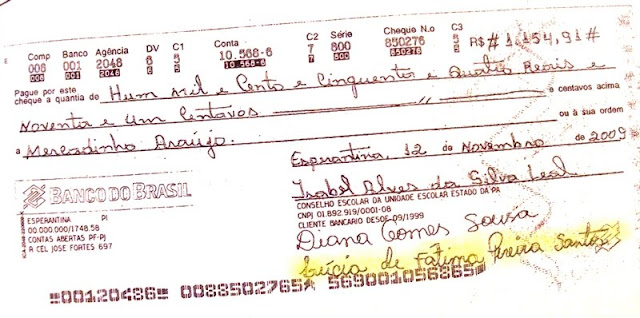 Comp Banco Agência DV C1 Conta C2 Série Cheque N.o C3
008 001 2048 6 10.568-6 7 800 850276 R$ # 1.154,91 #
008 001 2046 10.568-6 7 800 850276
Pague por este
cheque a quantia de Hum mil e Cento e Cinquenta e Quatro Reais e
Noventa e Um Centavos e centavos acima
a Mercadinho Araújo. ou à sua ordem
Esperantina, 12 de Novembro de 2009
BANCO DO BRASIL
Isabel Alves da Silva Leal
CONSELHO ESCOLAR DA UNIDADE ESCOLAR ESTADO DA PA
CNPJ 01.892.919/0001-08
CLIENTE BANCARIO DESDE 09/1999
ESPERANTINA PI
00.000.000/1748.58
CONTAS ABERTAS PF-PJ
R CEL JOSE FORTES 697
Diana Gomes Sousa
Lúcia de Fátima Pereira Santos
00120486 0083502765 569001056865